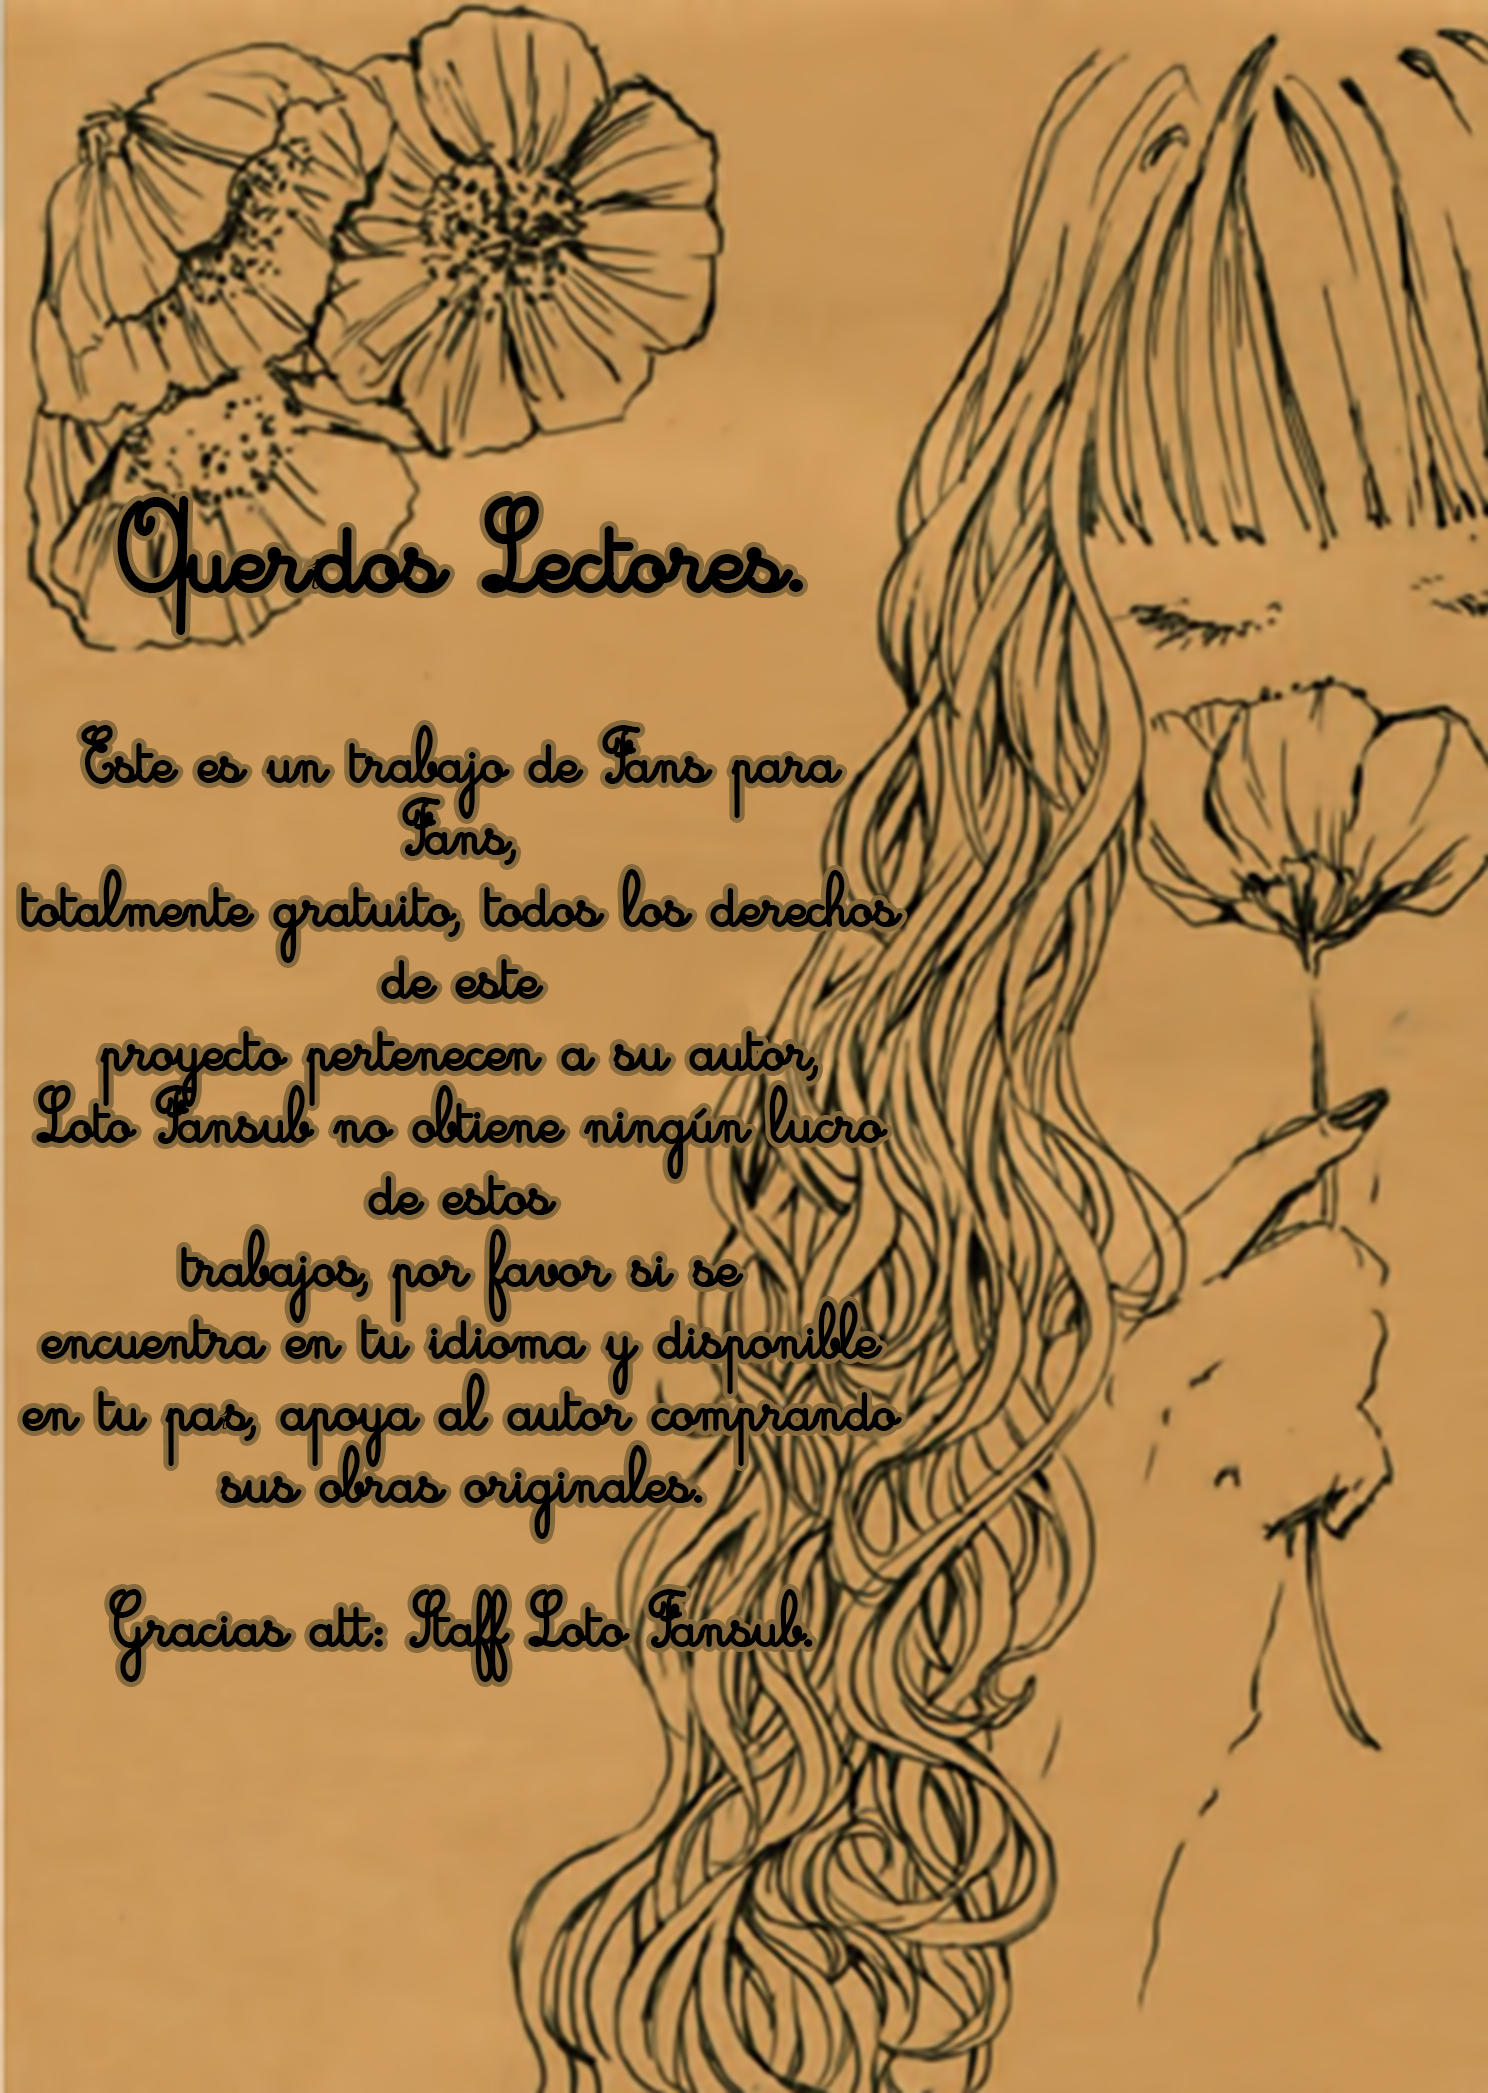 Querdos Lectores.
Este es un trabajo de Fans para
Fans,
totalmente gratuito, todos los derechos
de este
proyecto pertenecen a su autor,
Loto Fansub no obtiene ningún lucro
de estos
trabajos, por favor si se
encuentra en tu idioma y disponible
en tu pas, apoya al autor comprando
sus obras originales.
Gracias att: Staff Loto Fansub.